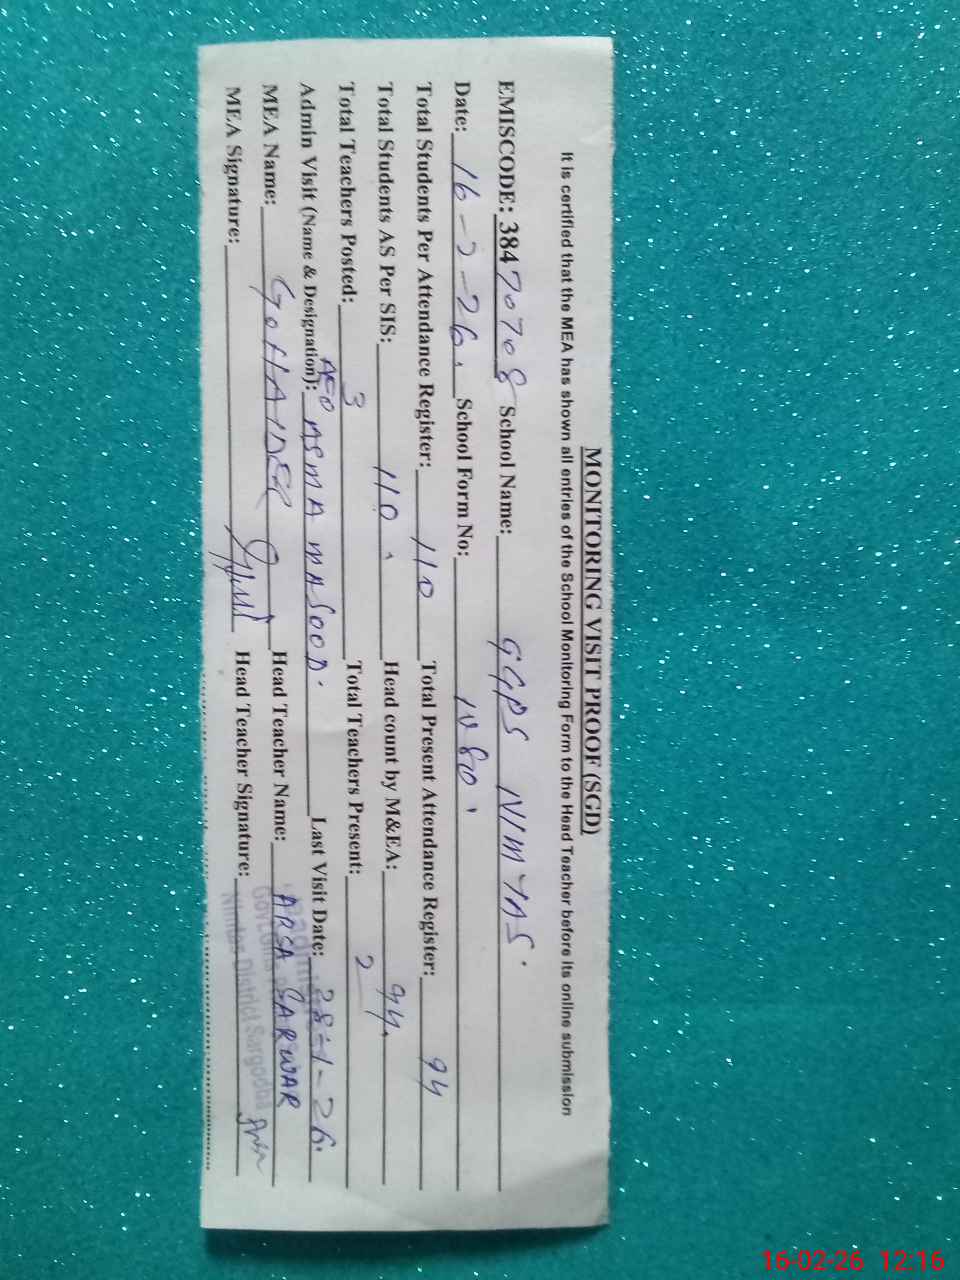 MONITORING VISIT PROOF (SGD)
It is certified that the MEA has shown all entries of the School Monitoring Form to the Head Teacher before its online submission
EMISCODE: 38470708 School Name: GGPS NIMTAS.
Date: 16-2-26. School Form No:
Total Students Per Attendance Register: 110 Total Present Attendance Register: 94
Total Students AS Per SIS: 110 Head count by M&EA: 94.
Total Teachers Posted: 3 Total Teachers Present: 2
Admin Visit (Name & Designation): AEO ASMA MASOOD. Last Visit Date: 28-1-26.
MEA Name: Head Teacher Name: ARSA SARWAR
MEA Signature: Head Teacher Signature:
District Sargodha
16-02-26 12:16